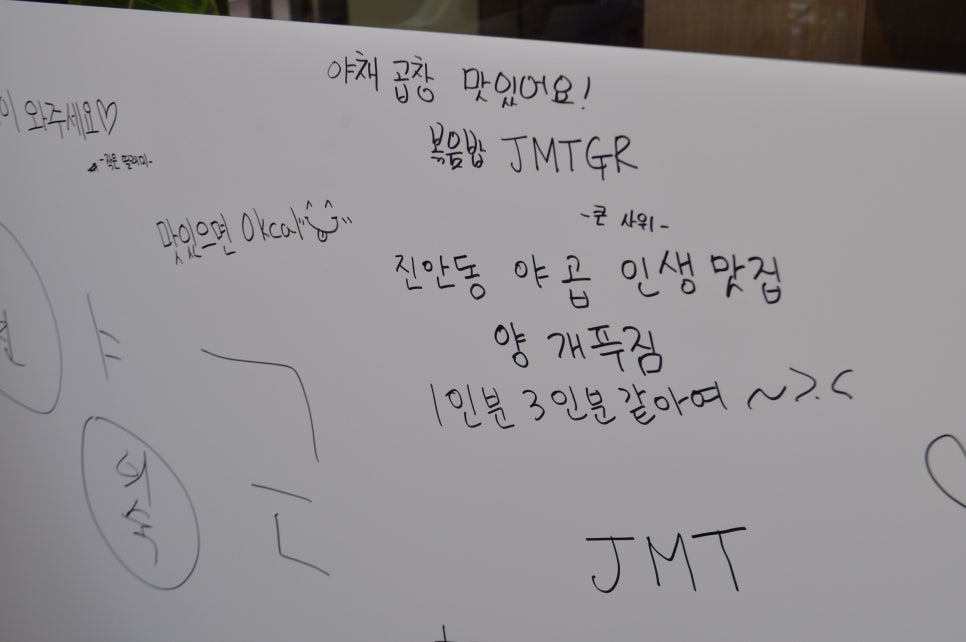 야채 곱창 맛있어요!
볶음밥 JMTGR
-큰 사위-
이 와주세요♡
-작은 딸래미-
맛있으면 0kcal
진안동 야곱 인생맛집
양 개푸짐
1인분 3인분같아여 ~>.<
JMT